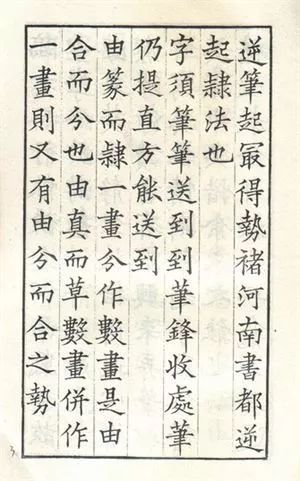 逆筆起冣得勢褚河南書都逆
起隷法也
字須筆筆送到到筆鋒收處筆
仍提直方䏻送到
由篆而隷一畫分作數畫是由
合而分也由真而草數畫併作
一畫則又有由分而合之勢